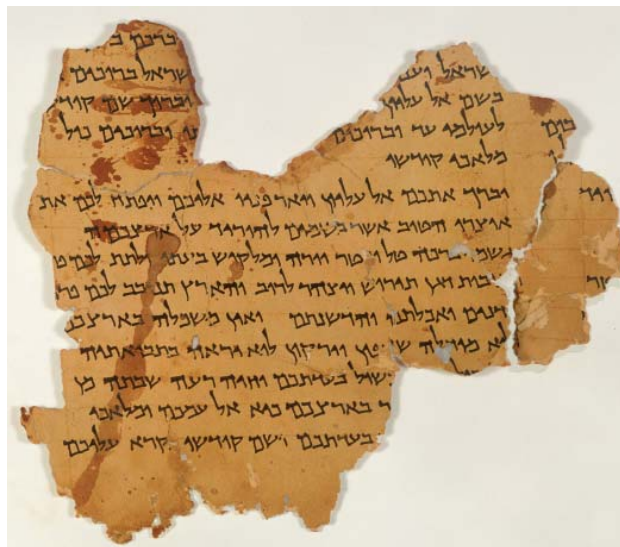 וברכם
שראל וענ שראל ברוכים
בשם אל עליון וברוך שם קודש
לעולמי עד וברוכים וברוכים כול
מלאכי קודשו
יברך אתכם אל עליון ויאר פניו אליכם ויפתח לכם את
אוצרו הטוב אשר בשמים להוריד על ארצכמה
גשמי ברכה טל ומטר יורה ומלקוש בעתו ולתת לכם
תנובות דגן תירוש ויצהר לרוב והארץ תנובב לכם פרי
דנים ואכלתם והדשנתם ואין משכלה בארצכם
לוא מוחלה שדפון וירקון לוא יראה בתבואתיה
שול בעדתכם וחיה רעה שבתה מן
ר בארצכם כיא אל עמכם ומלאכי
בעדתכם ושם קודשו נקרא עליכם